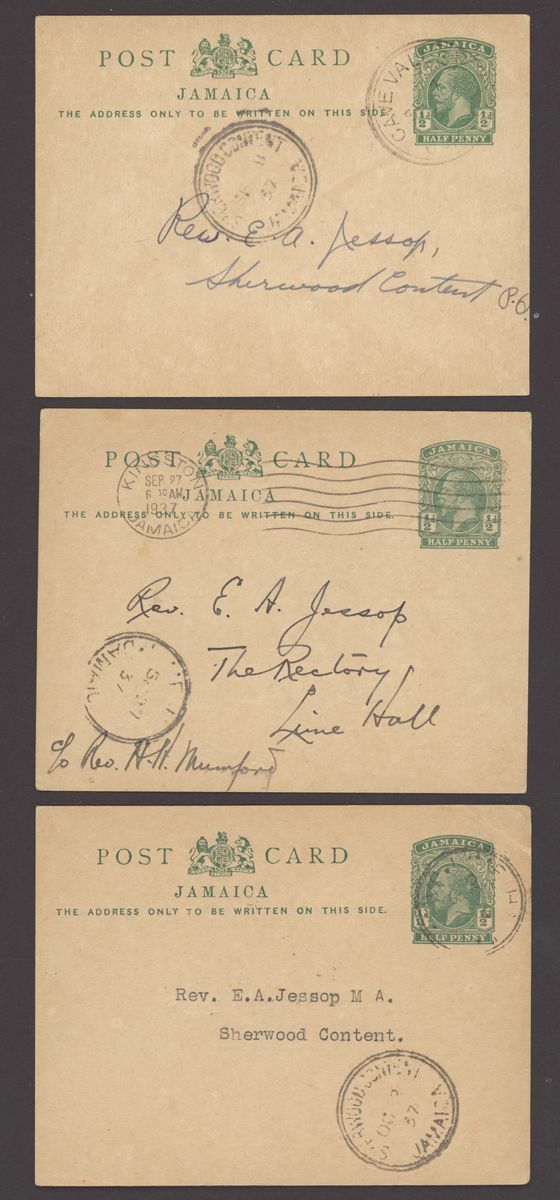 POST CARD
JAMAICA
THE ADDRESS ONLY TO BE WRITTEN ON THIS SIDE.
JAMAICA
½d ½d
HALF PENNY
CAVE VAL
SHERWOOD CONTENT
8
37
JAMAICA
Rev. E. A. Jessop,
Sherwood Content P.O.
POST CARD
JAMAICA
THE ADDRESS ONLY TO BE WRITTEN ON THIS SIDE.
KINGSTON
SEP 27
6 30 AM
1937
JAMAICA
JAMAICA
½d ½d
HALF PENNY
Rev. E. A. Jessop
The Rectory
Lime Hall
37
c/o Rev. A. H. Mumford
POST CARD
JAMAICA
THE ADDRESS ONLY TO BE WRITTEN ON THIS SIDE.
JAMAICA
½d ½d
HALF PENNY
Rev. E.A.Jessop M A.
Sherwood Content.
SHERWOOD CONTENT
OC
37
JAMAICA